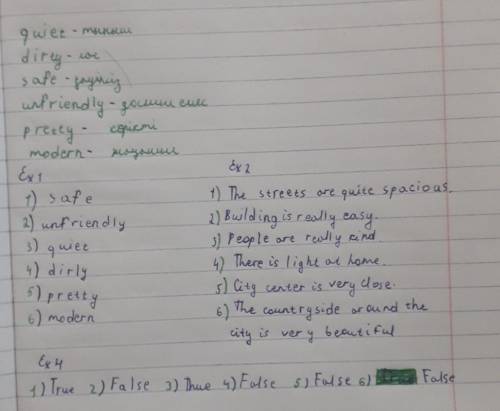 quiet - тыныш
dirty - лас
safe - қауіпсіз
unfriendly - достық емес
pretty - сүйкімді
modern - заманауи
Ex1
1) safe
2) unfriendly
3) quiet
4) dirly
5) pretty
6) modern
Ex2
1) The streets are quite spacious.
2) Building is really easy.
3) People are really kind
4) There is light at home.
5) City center is very close.
6) The countryside around the
city is very beautiful
Ex4
1) True 2) False 3) Thue 4) False 5) False 6) False